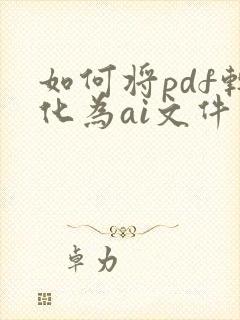 如何将pdf转
化为ai文件
卓力